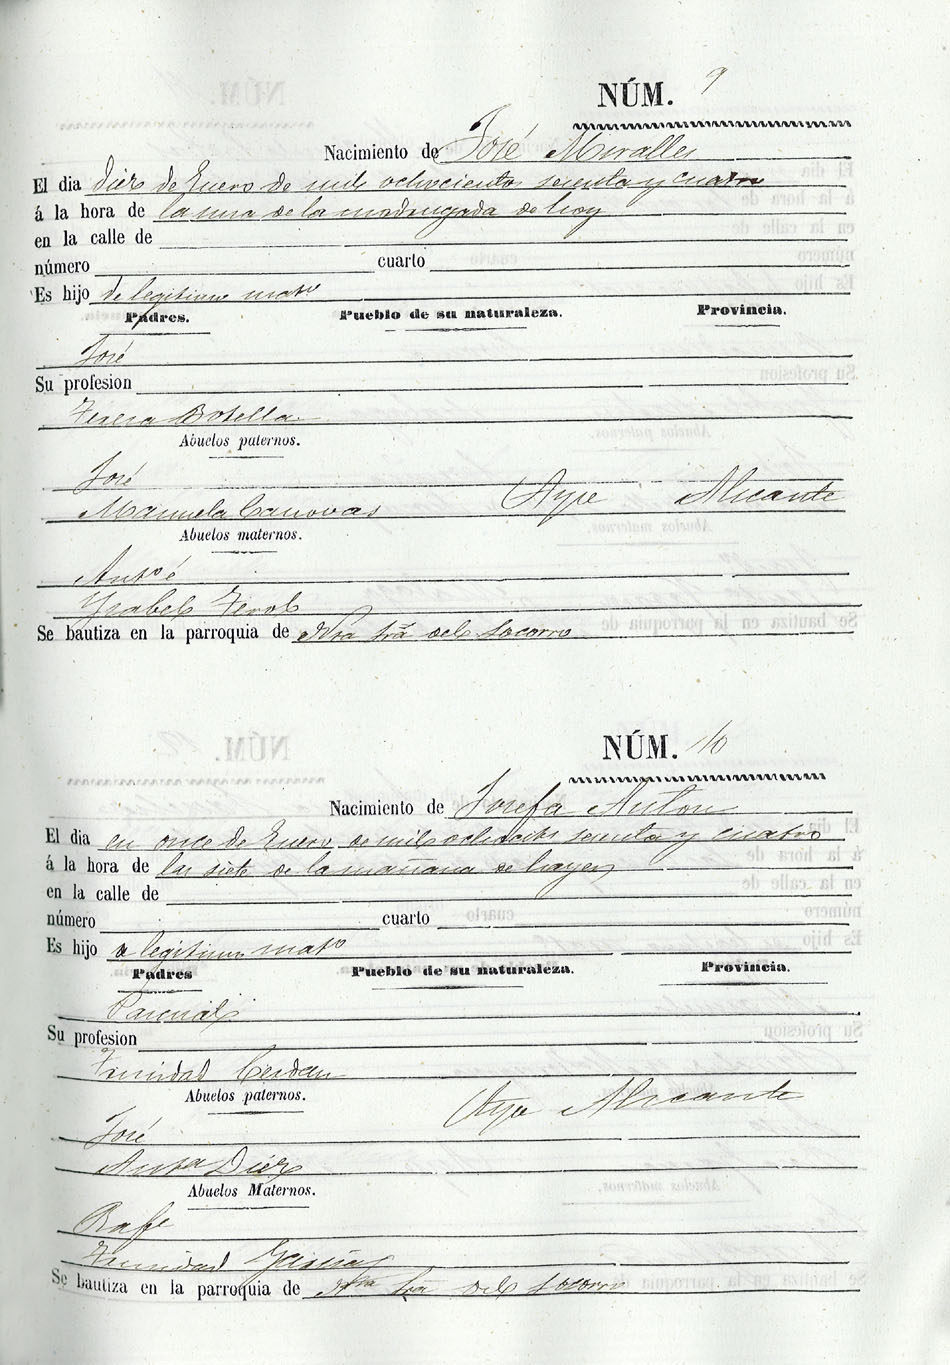 NÚM. 9
Nacimiento de José Miralles
El dia diez de Enero de mil ochocientos sesenta y cuatro
á la hora de la una de la madrugada de hoy
en la calle de
número cuarto
Es hijo de legitimo matº
Padres. Pueblo de su naturaleza. Provincia.
José
Su profesion
Teresa Botella
Abuelos paternos.
José
Manuela Canovas Aspe Alicante
Abuelos maternos.
Antº é
Ysabel Ferol
Se bautiza en la parroquia de Ntra Sra del Socorro
NÚM. 10
Nacimiento de Josefa Anton
El dia en once de Enero de mil ochocits sesenta y cuatro
á la hora de las siete de la mañana de
en la calle de
número cuarto
Es hijo legitimo matº
Padres Pueblo de su naturaleza. Provincia.
Pascual
Su profesion
Trinidad Cerdan
Abuelos paternos. Aspe Alicante
José
Antª Diez
Abuelos Maternos.
Rafe
Trinidad
Se bautiza en la parroquia de Ntra Sra del Socorro